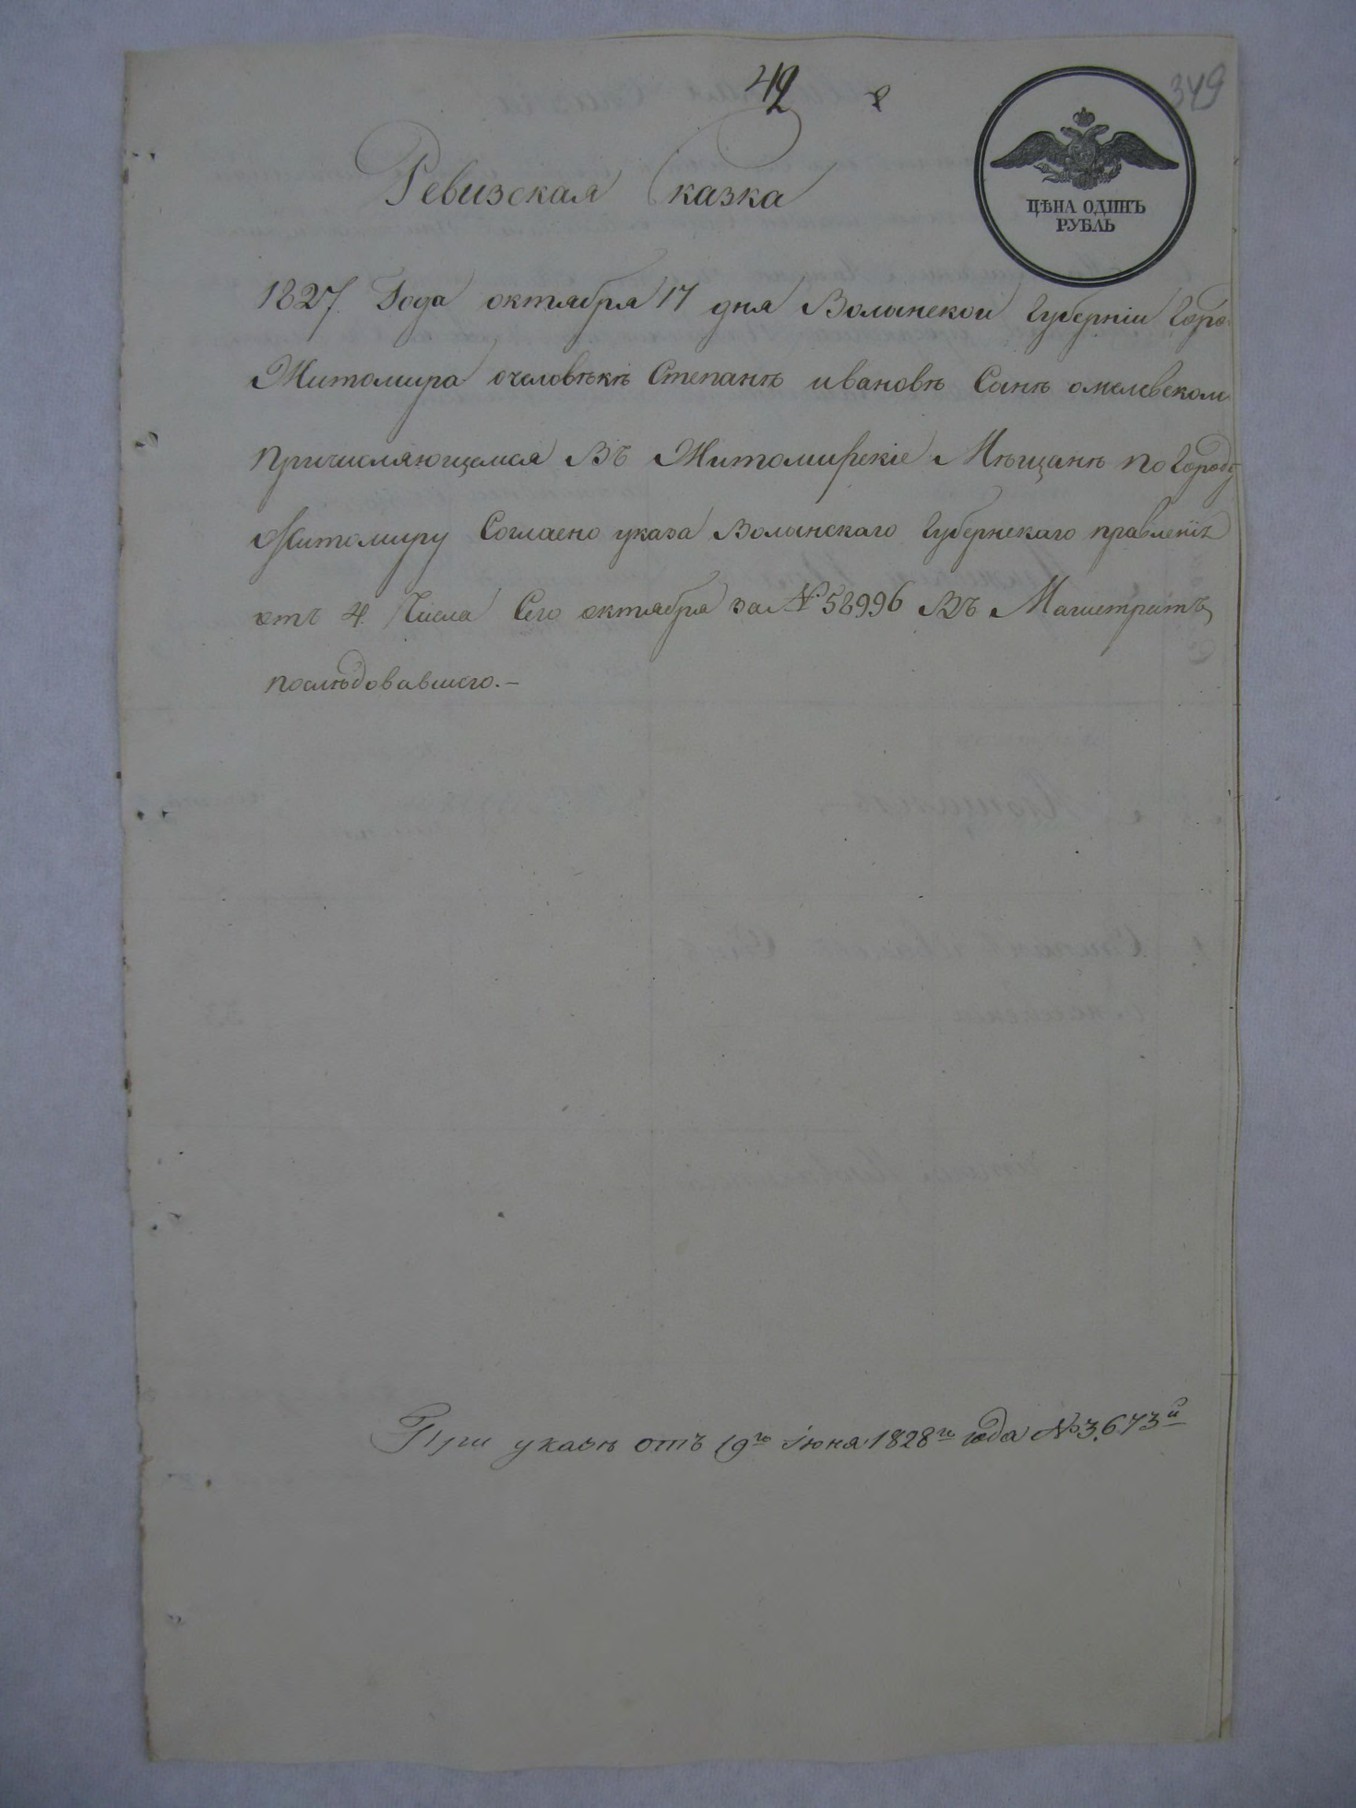 42
349
ЦѢНА ОДИНЪ
РУБЛЬ
Ревизская сказка
1827. Года октября 17 дня Волынской Губерніи Горо
Житомира очеловѣкѣ Степанѣ ивановѣ Сынѣ омелевском
причисляющемся ВЪ Житомирскіе Мѣщанѣ по Городу
Житомиру Согласно указа Волынскаго Губернскаго правленія
отъ 4. Числа Сего октября за № 58996 ВЪ Магистратъ
послѣдовавшего.-
При указѣ отъ 19го Іюня 1828го года № 3,673й